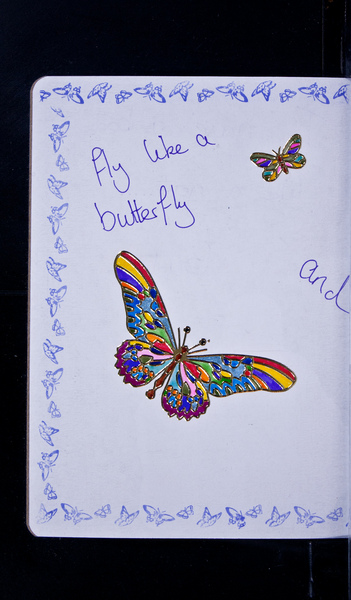 fly like a
butterfly
and